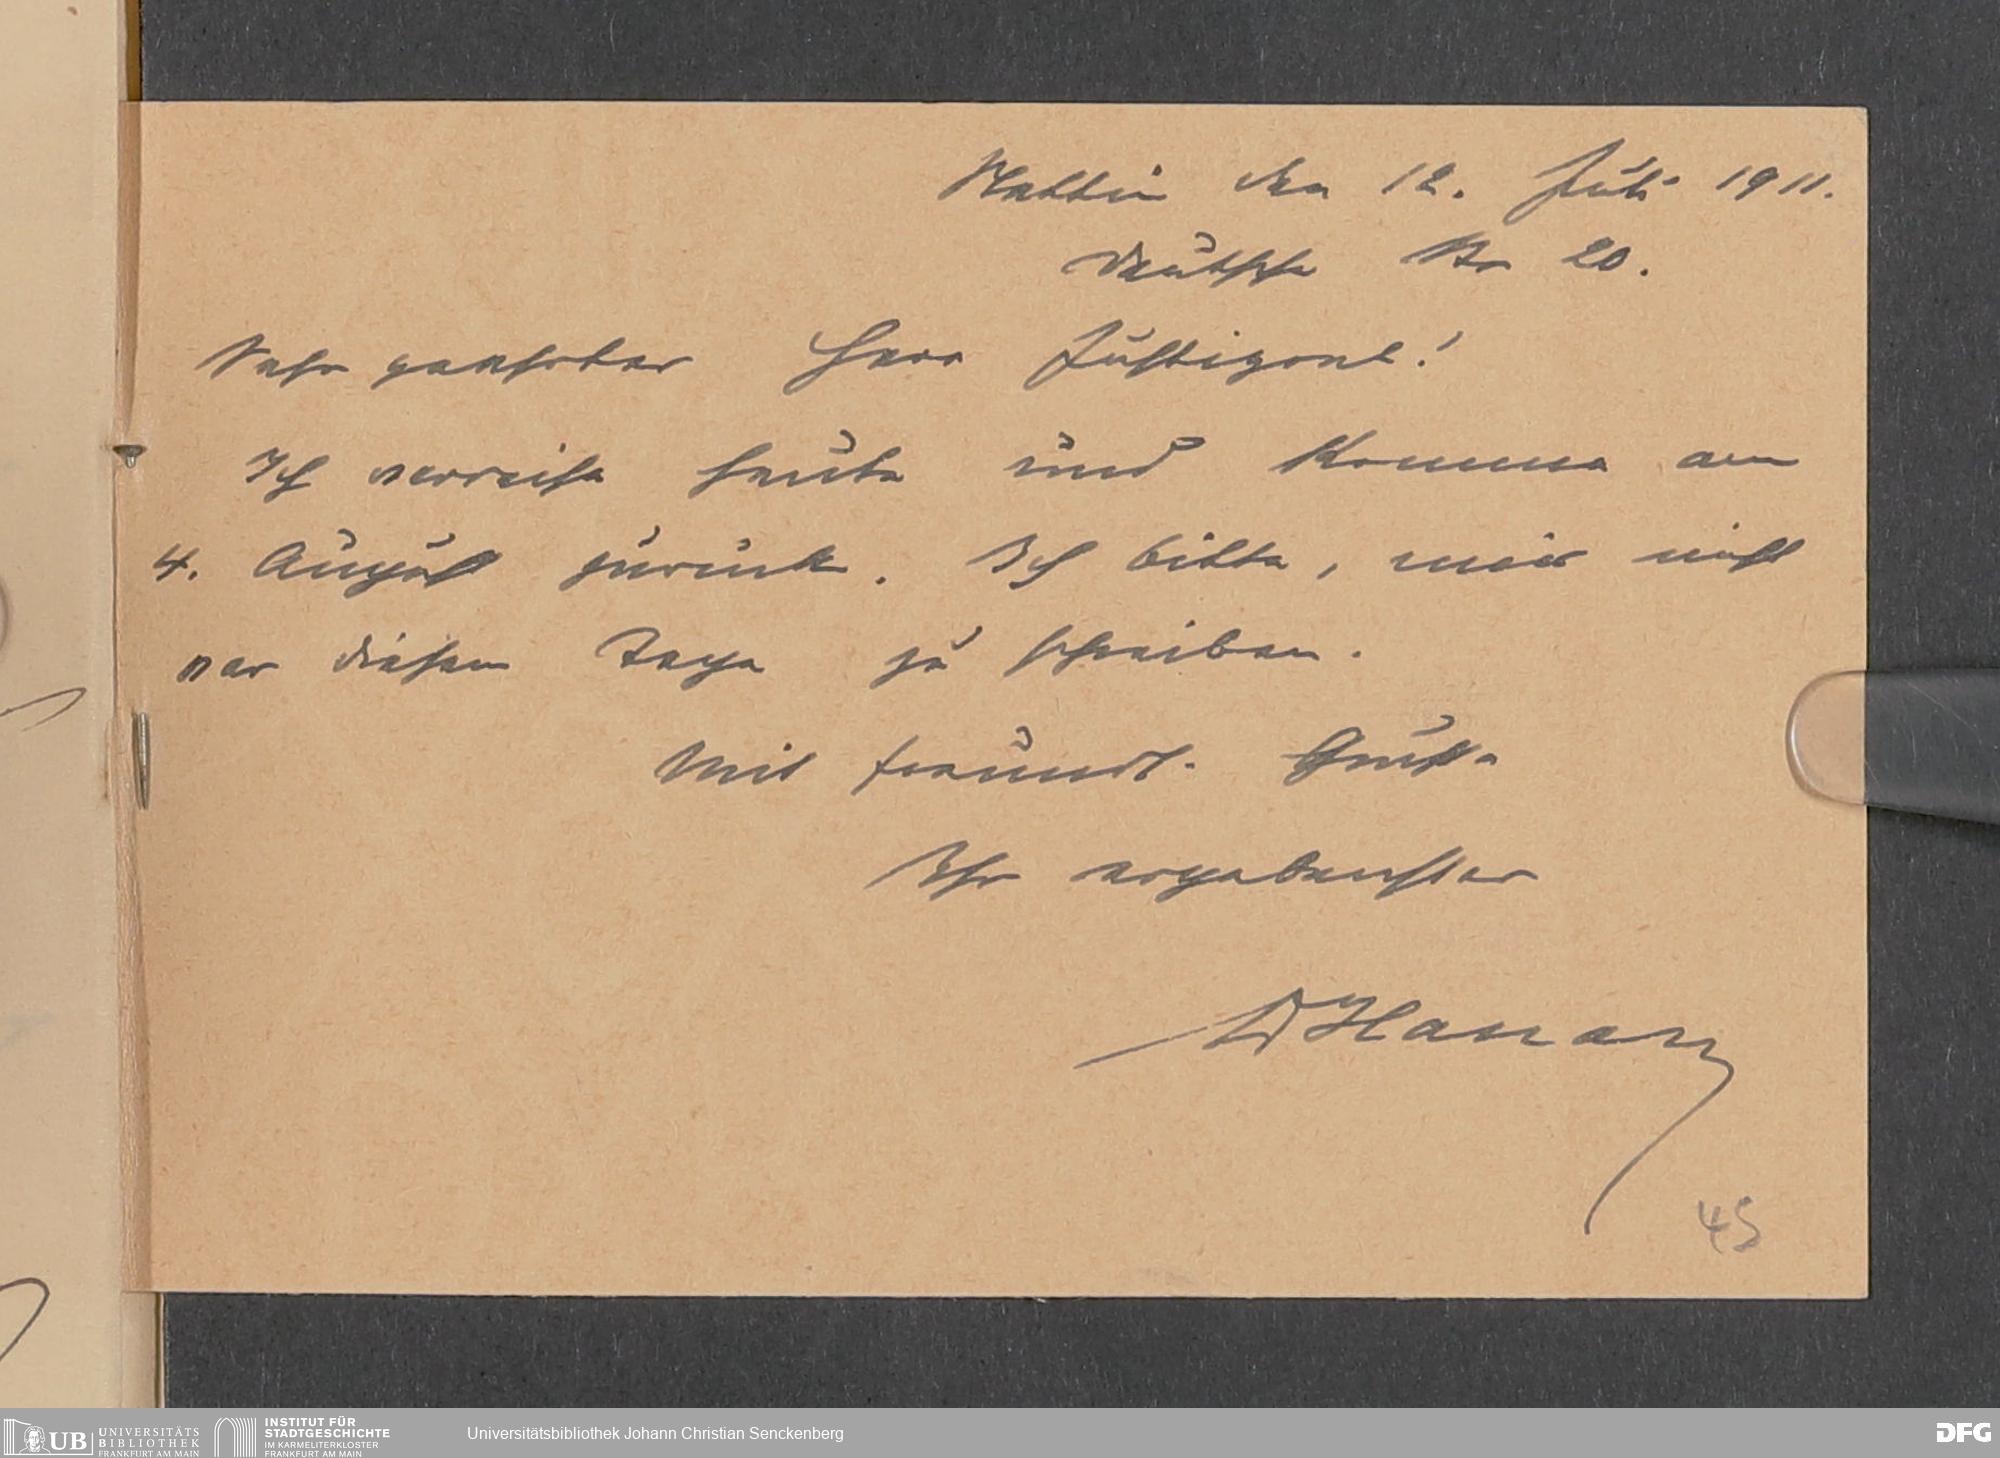 Stettin den 12. Juli 1911.
Deutsche Str 20.
Sehr geehrter Herr Justizrat!
Ich verreise heute und komme am
4. August zurück. Ich bitte, mir nicht
vor diesem Tage zu schreiben.
Mit freundl. Gruße
Ihr ergebenster
45
UB
UNIVERSITÄTS
BIBLIOTHEK
FRANKFURT AM MAIN
INSTITUT FÜR
STADTGESCHICHTE
IM KARMELITERKLOSTER
FRANKFURT AM MAIN
Universitätsbibliothek Johann Christian Senckenberg
DFG